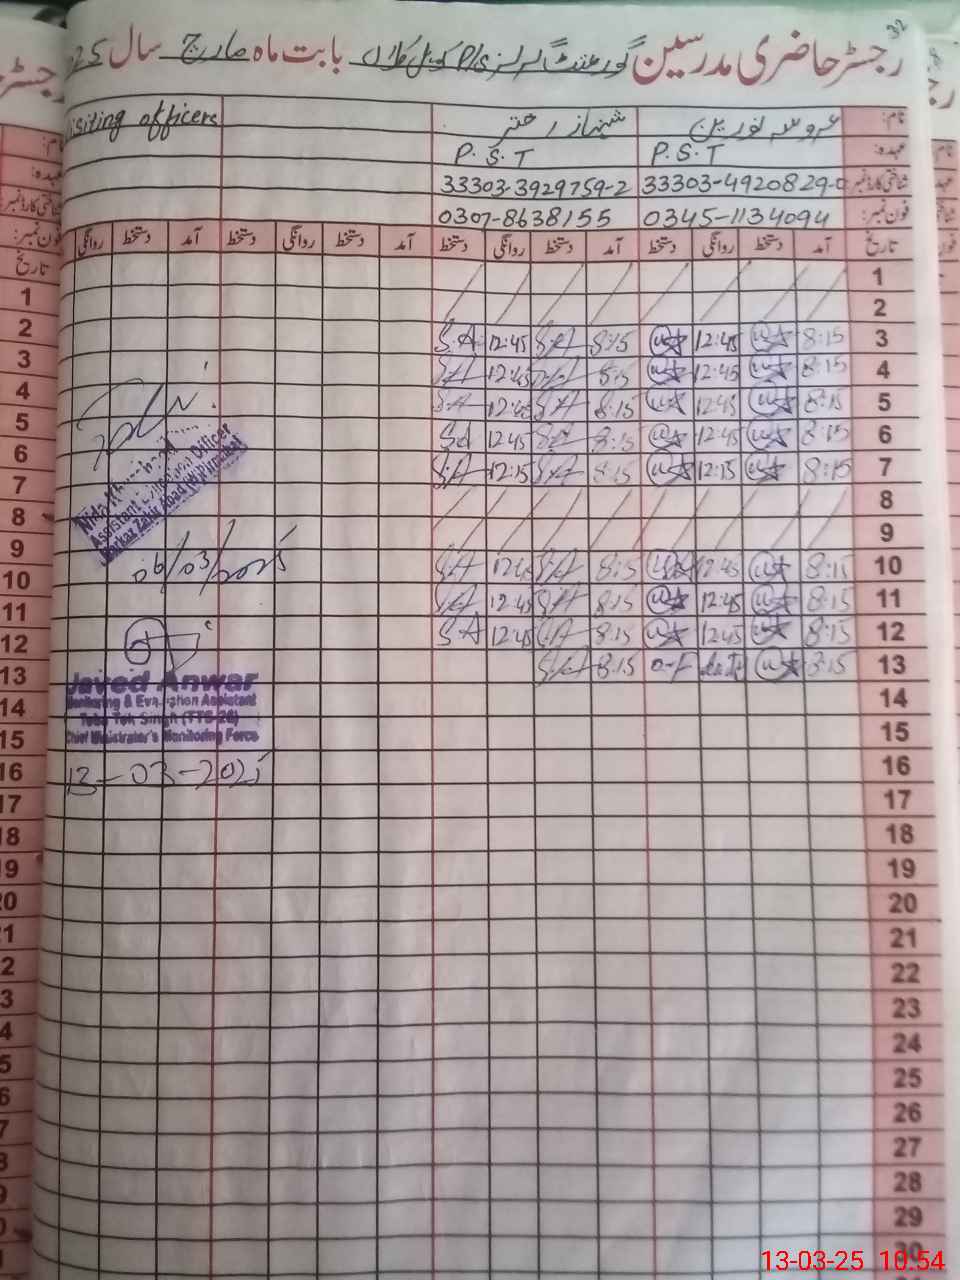 32
رجسٹر حاضری مدرسین گورنمنٹ گرلز P/S بابت ماہ مارچ سال 25
نام: عروسہ نورین شہناز اختر Visiting officers
عہدہ: P.S.T P.S.T
شناختی کارڈ نمبر: 33303-4920829-0 33303-3929759-2
فون نمبر: 0345-1134094 0307-8638155
تاریخ آمد دستخط روانگی دستخط آمد دستخط روانگی دستخط آمد دستخط روانگی دستخط آمد دستخط روانگی
1
2
3 8:15 12:45 8:15 S.A 12:45 S.A
4 8:15 12:45 8:15 S.A 12:45 S.A
5 8:15 12:45 8:15 S.A 12:45 S.A
6 8:15 12:45 8:15 S.A 12:45 S.A
7 8:15 12:15 8:15 S.A 12:15 S.A
8
9
10 8:15 12:45 8:15 S.A 12:45 S.A
11 8:15 12:45 8:15 S.A 12:45 S.A
12 8:15 12:45 8:15 S.A 12:45 S.A
13 8:15 8:15 S.A
14
15
16
17
18
19
20
21
22
23
24
25
26
27
28
29
30
Nida
Assistant Education Officer
Markaz
06/03/2025
Javed Anwar
Monitoring & Evaluation Assistant
Toba Tek Singh (TTS-26)
Chief Minister's Monitoring Force
13-03-2025
13-03-25 10:54